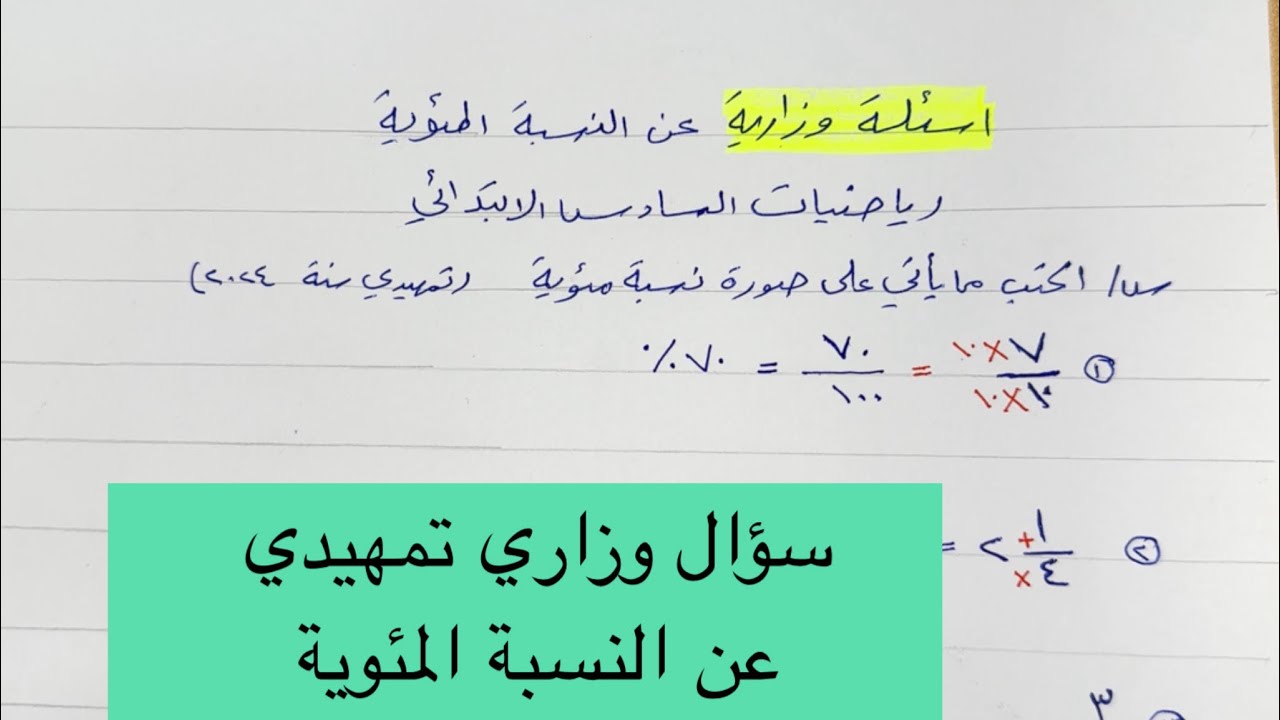 اسئلة وزارية عن النسبة المئوية
رياضيات السادس الابتدائي
س١/ اكتب ما يأتي على صورة نسبة مئوية (تمهيدي سنة ٢٠٢٤)
① ٧×١٠ / ١٠×١٠ = ٧٠ / ١٠٠ = ٧٠٪
② ١ / ٤ + × ٢ =
٣
سؤال وزاري تمهيدي
عن النسبة المئوية